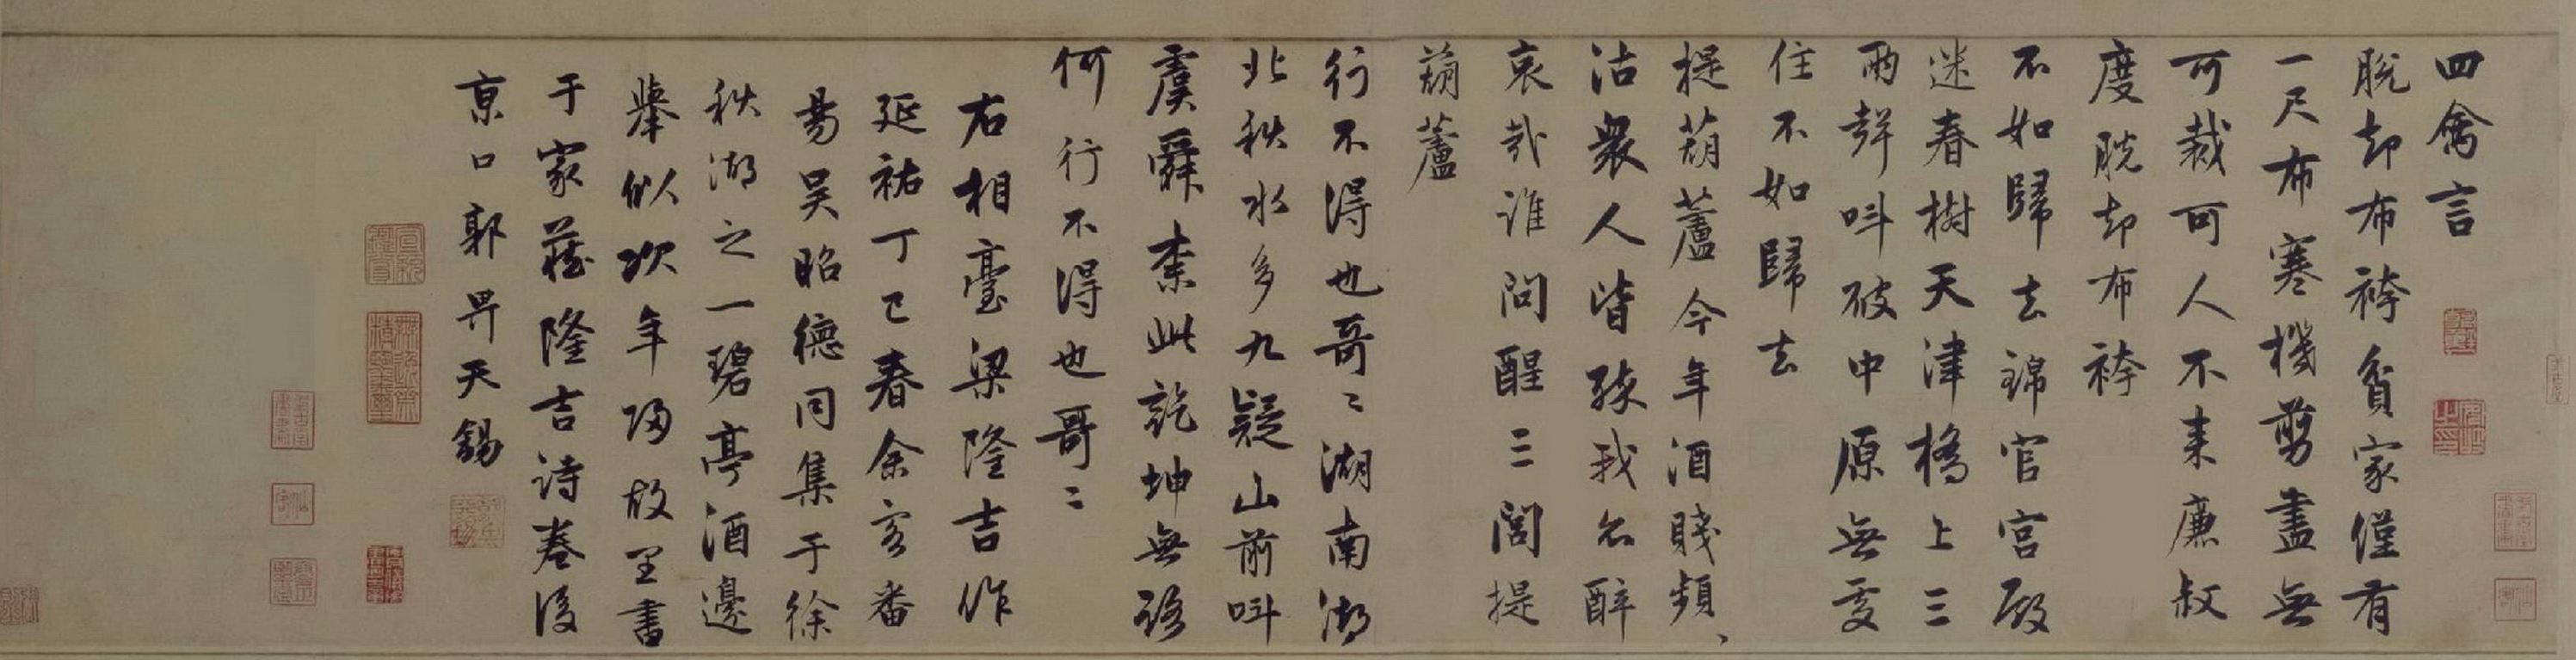 四禽言
脱却布袴貧家僅有
一尺布寒機剪盡無
可裁可人不来廉叔
度脱却布袴
不如歸去錦官宫殿
迷春樹天津橋上三
兩聲叫破中原無處
住不如歸去
提葫蘆今年酒賤頻、
沽衆人皆殊我名醉
哀哉誰問醒三閭提
葫蘆
行不得也哥〻湖南湖
北秋水多九疑山前叫
虞舜柰此乾坤無路
何行不得也哥〻
右相臺梁隆吉作
延祐丁巳春余客番
昜吴昭德同集于徐
秋湖之一碧亭酒邊
舉似次年归故里書
于家藏隆吉诗卷後
京口郭畀天錫